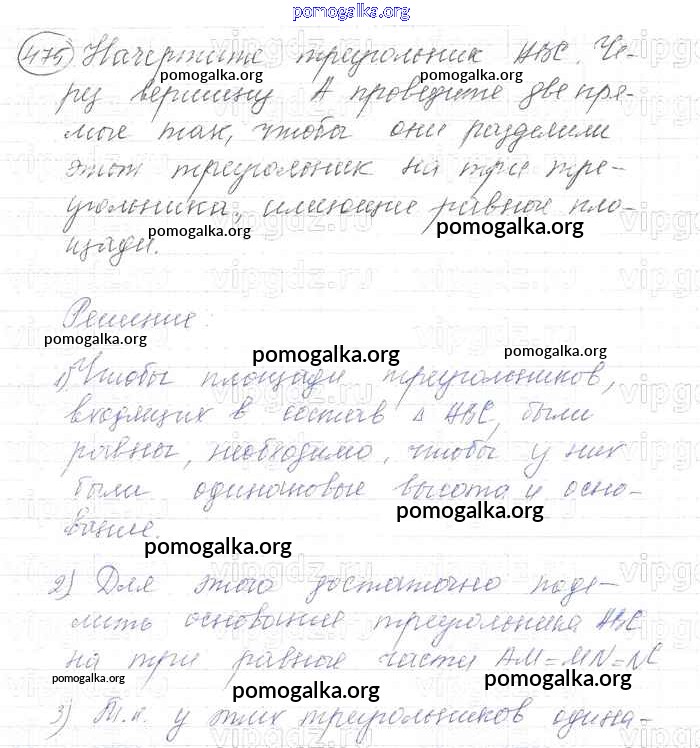 pomogalka.org
475 Начертите треугольник ABC. Че-
pomogalka.org pomogalka.org
рез вершину A проведите две пря-
мые так, чтобы они разделили
этот треугольник на три тре-
угольника, имеющие равные пло-
pomogalka.org pomogalka.org
щади.
Решение:
pomogalka.org pomogalka.org pomogalka.org
1) Чтобы площади треугольников,
входящих в состав Δ ABC, были
равны, необходимо, чтобы у них
были одинаковые высота и осно-
pomogalka.org
вание.
pomogalka.org
2) Для этого достаточно поде-
лить основание треугольника ABC
на три равные части AM=MN=NC
pomogalka.org pomogalka.org pomogalka.org
3) Т.к. у этих треугольников одина-